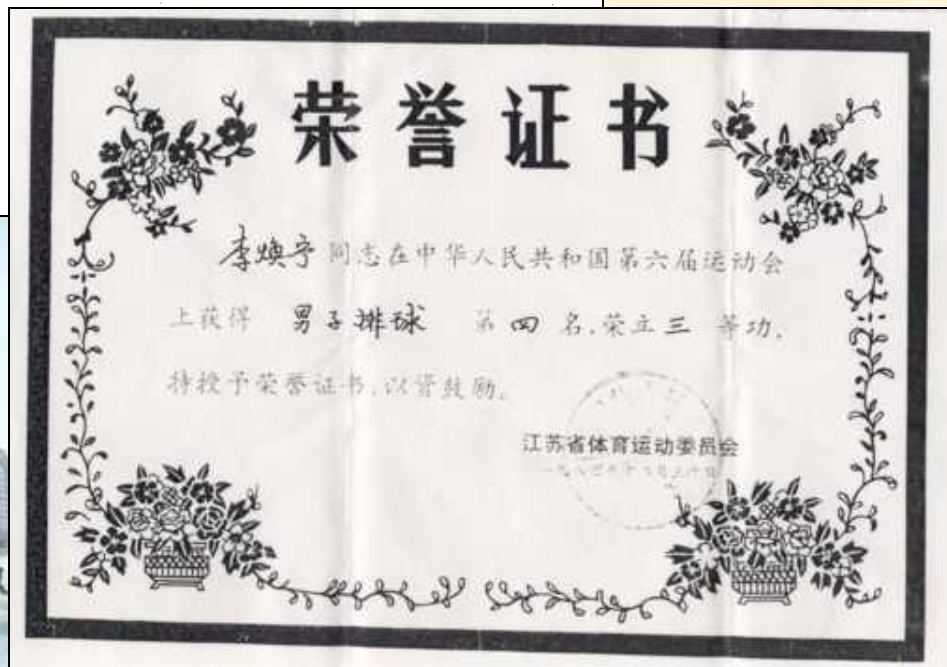 荣誉证书
李焕宁 同志在中华人民共和国第六届运动会
上获得 男子排球 第四名,荣立三等功,
特授予荣誉证书,以资鼓励。
江苏省体育运动委员会